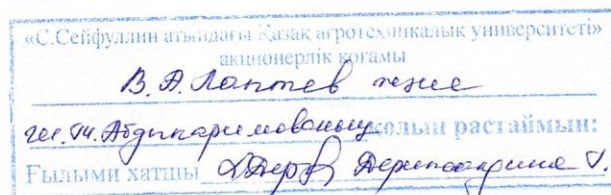 «С.Сейфуллин атындағы Қазақ агротехникалық университеті»
акционерлік қоғамы
В. А. Лаптев және
Абдыкаримованың қолын растаймын:
Ғылыми хатшы